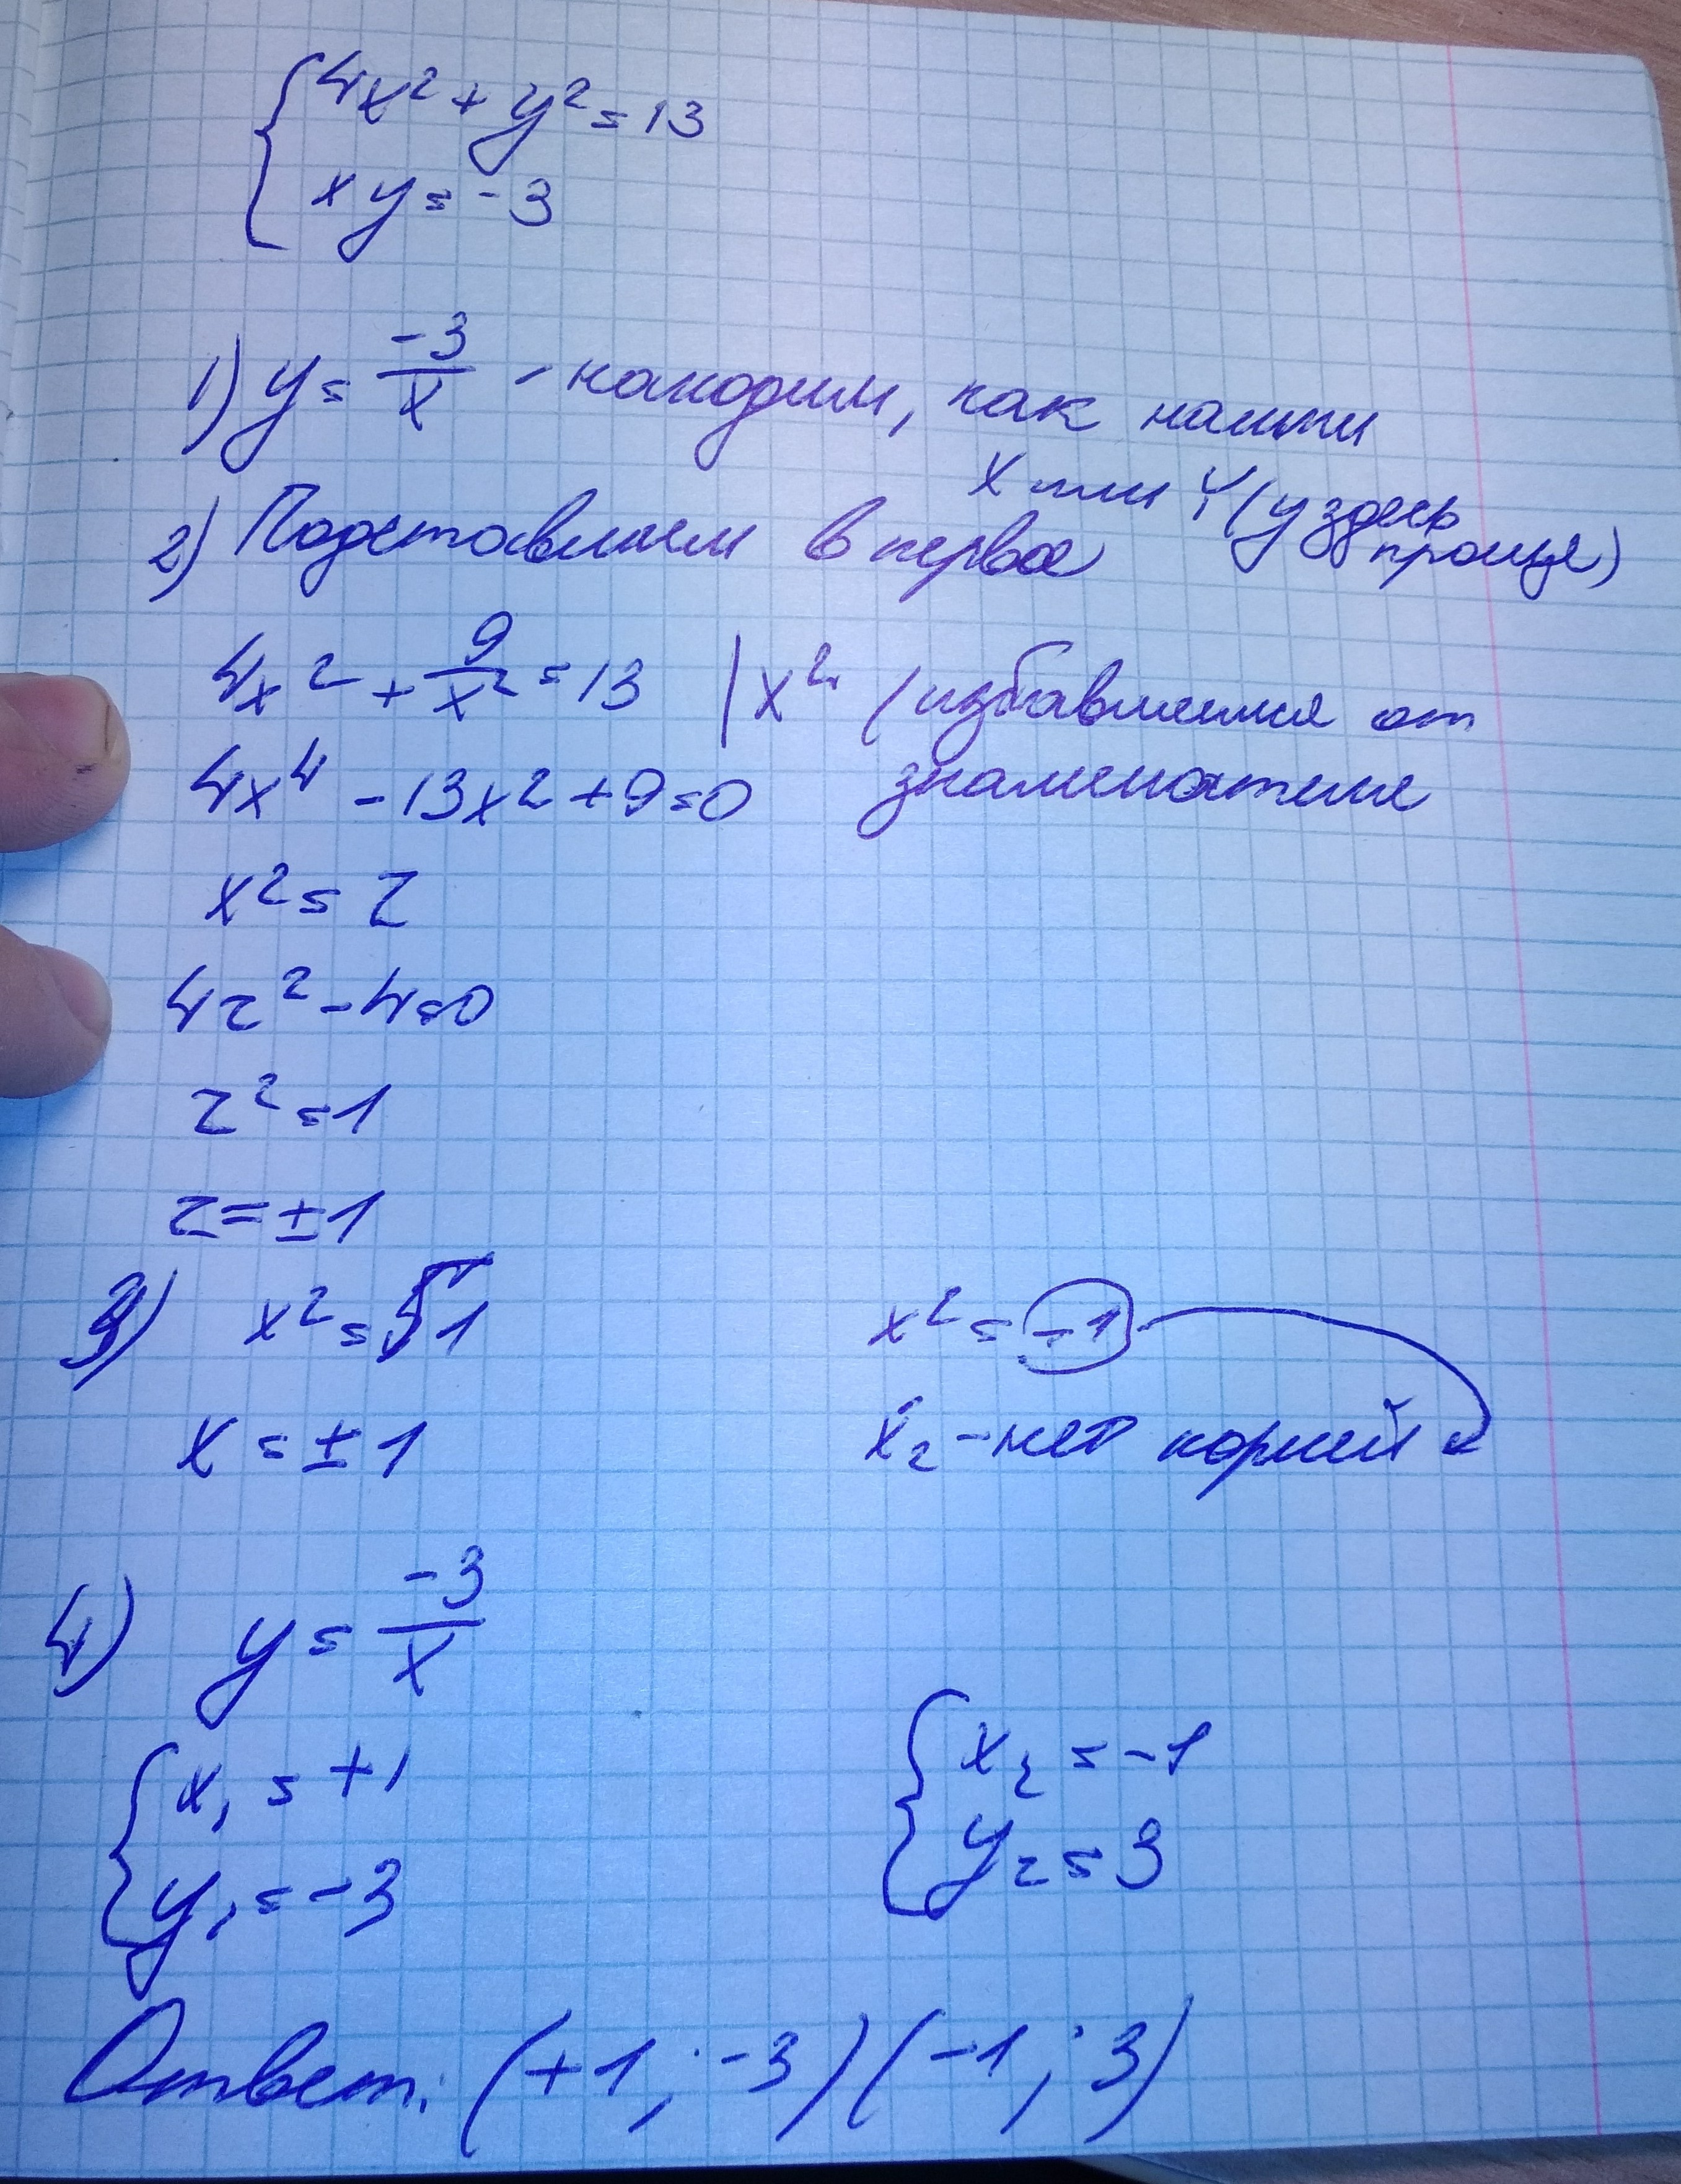 4x² + y² = 13
xy = -3
1) y = -3/x - находим, как найти
x или y (y здесь проще)
2) Подставляем в первое
4x² + 9/x² = 13 | x² (избавляемся от
знаменателя
4x⁴ - 13x² + 9 = 0
x² = z
4z² - 4 = 0
z² = 1
z = ±1
3) x² = √1 x² = -1
x = ±1 x₂ - нет корней
4) y = -3/x
x₁ = +1 x₂ = -1
y₁ = -3 y₂ = 3
Ответ: (+1; -3) (-1; 3)